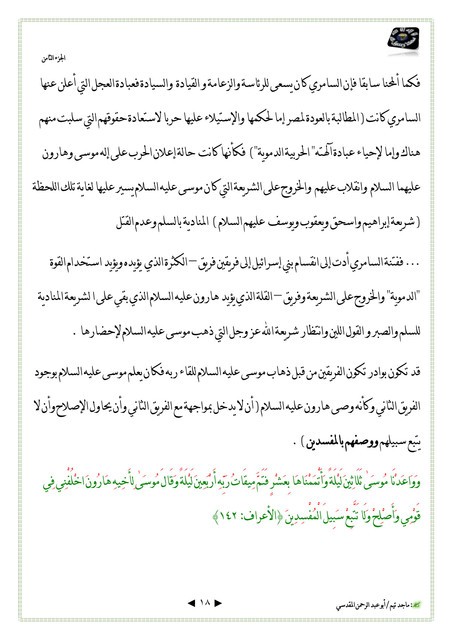 الجزء الثامن
فكما ألمحنا سابقا فإن السامري كان يسعى للرئاسة والزعامة و القيادة والسيادة فعبادة العجل التي أعلن عنها
السامري كانت ( المطالبة بالعودة لمصر إما لحكمها والإستيلاء عليها حربا لاستعادة حقوقهم التي سلبت منهم
هناك وإما لإحياء عبادة آلهته "الحربية الدموية" ) فكأنها كانت حالة إعلان الحرب على إله موسى وهارون
عليهما السلام وانقلاب عليهم والخروج على الشريعة التي كان موسى عليه السلام يسير عليها لغاية تلك اللحظة
( شريعة إبراهيم واسحق ويعقوب ويوسف عليهم السلام ) المنادية بالسلم وعدم القتل
... ففتنة السامري أدت إلى انقسام بني إسرائيل إلى فريقين فريق – الكثرة الذي يؤيده ويؤيد استخدام القوة
"الدموية" والخروج على الشريعة وفريق – القلة الذي يؤيد هارون عليه السلام الذي بقي على ا لشريعة المنادية
للسلم والصبر و القول اللين وانتظار شريعة الله عز وجل التي ذهب موسى عليه السلام لإحضارها .
قد تكون بوادر تكون الفريقين من قبل ذهاب موسى عليه السلام للقاء ربه فكان يعلم موسى عليه السلام بوجود
الفريق الثاني وكأنه وصى هارون عليه السلام ( أن لا يدخل بمواجهة مع الفريق الثاني وأن يحاول الإصلاح وأن لا
يتبع سبيلهم ووصفهم بالمفسدين ) .
وَوَاعَدْنَا مُوسَىٰ ثَلَاثِينَ لَيْلَةً وَأَتْمَمْنَاهَا بِعَشْرٍ فَتَمَّ مِيقَاتُ رَبِّهِ أَرْبَعِينَ لَيْلَةً وَقَالَ مُوسَىٰ لِأَخِيهِ هَارُونَ اخْلُفْنِي فِي
قَوْمِي وَأَصْلِحْ وَلَا تَتَّبِعْ سَبِيلَ الْمُفْسِدِينَ ﴿الأعراف: ١٤٢﴾
: ماجد تيم / أبو عبد الرحمن المقدسي
١٨